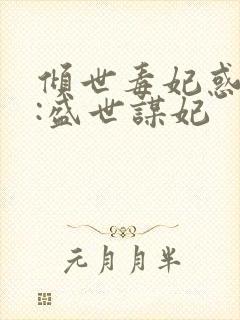 傾世毒妃惑
:盛世謀妃
元月月半